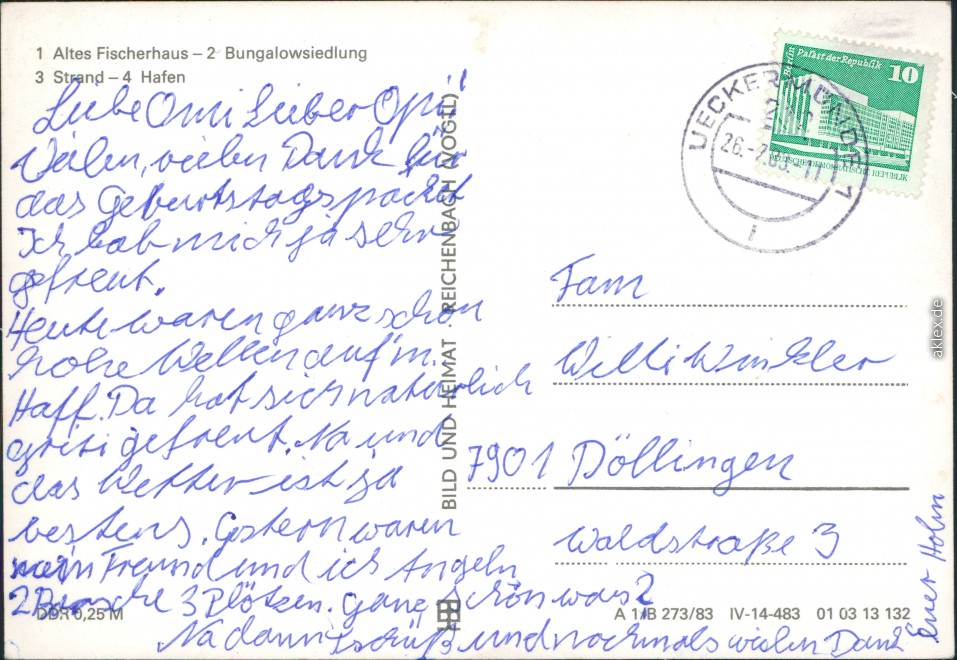 1 Altes Fischerhaus – 2 Bungalowsiedlung
3 Strand – 4 Hafen
Liebe Omi Lieber Opi!
Vielen, vielen Dank für
das Geburtstagspacket
Ich hab mich ja sehr
gefreut.
Heute waren ganz schön
hohe Wellen auf'm
Haff. Da hat sich natürlich
gefreut. Na und
das Wetter ist ja
bestens. Gestern waren
mein Freund und ich Angeln
2 Barsche 3 Plötzen. Ganz schön was?
Na dann tschüß und nochmals vielen Dank
Euer Holm
DDR 0,25 M
BILD UND HEIMAT · REICHENBACH (VOGTL)
A 1/B 273/83 IV-14-483 01 03 13 132
Berlin Palast der Republik
10
DEUTSCHE DEMOKRATISCHE REPUBLIK
UECKERMÜNDE 1
Fam
Willi Winkler
7901 Döllingen
Waldstraße 3
aklex.de